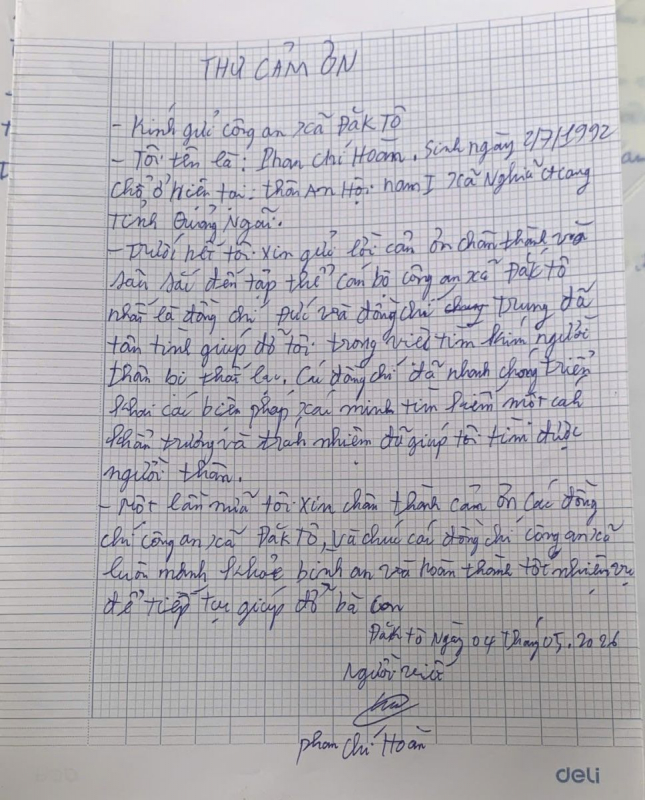 THƯ CẢM ƠN
- Kính gửi công an xã Đăk Tô
- Tôi tên là: Phan Chí Hoàn. Sinh ngày 2/7/1992
Chổ ở hiện tại: thôn An Hội nam I xã Nghĩa Giang
Tỉnh Quảng Ngãi.
- Trước hết tôi xin gửi lời cảm ơn chân thành và
sâu sắc đến tập thể cán bộ công an xã Đăk Tô
nhất là đồng chí Đức và đồng chí Trung đã
tận tình giúp đỡ tôi trong việc tìm kiếm người
thân bị thất lạc. Các đồng chí đã nhanh chóng triển
khai các biện pháp xác minh tìm kiếm một cách
khẩn trương và trách nhiệm đã giúp tôi tìm được
người thân.
- Một lần nữa tôi xin chân thành cảm ơn các đồng
chí công an xã Đăk Tô, và chúc các đồng chí công an xã
luôn mạnh khỏe bình an và hoàn thành tốt nhiệm vụ
để tiếp tục giúp đỡ bà con
Đăk Tô Ngày 04 tháng 05. 2026
Người viết
phan Chí Hoàn
deli